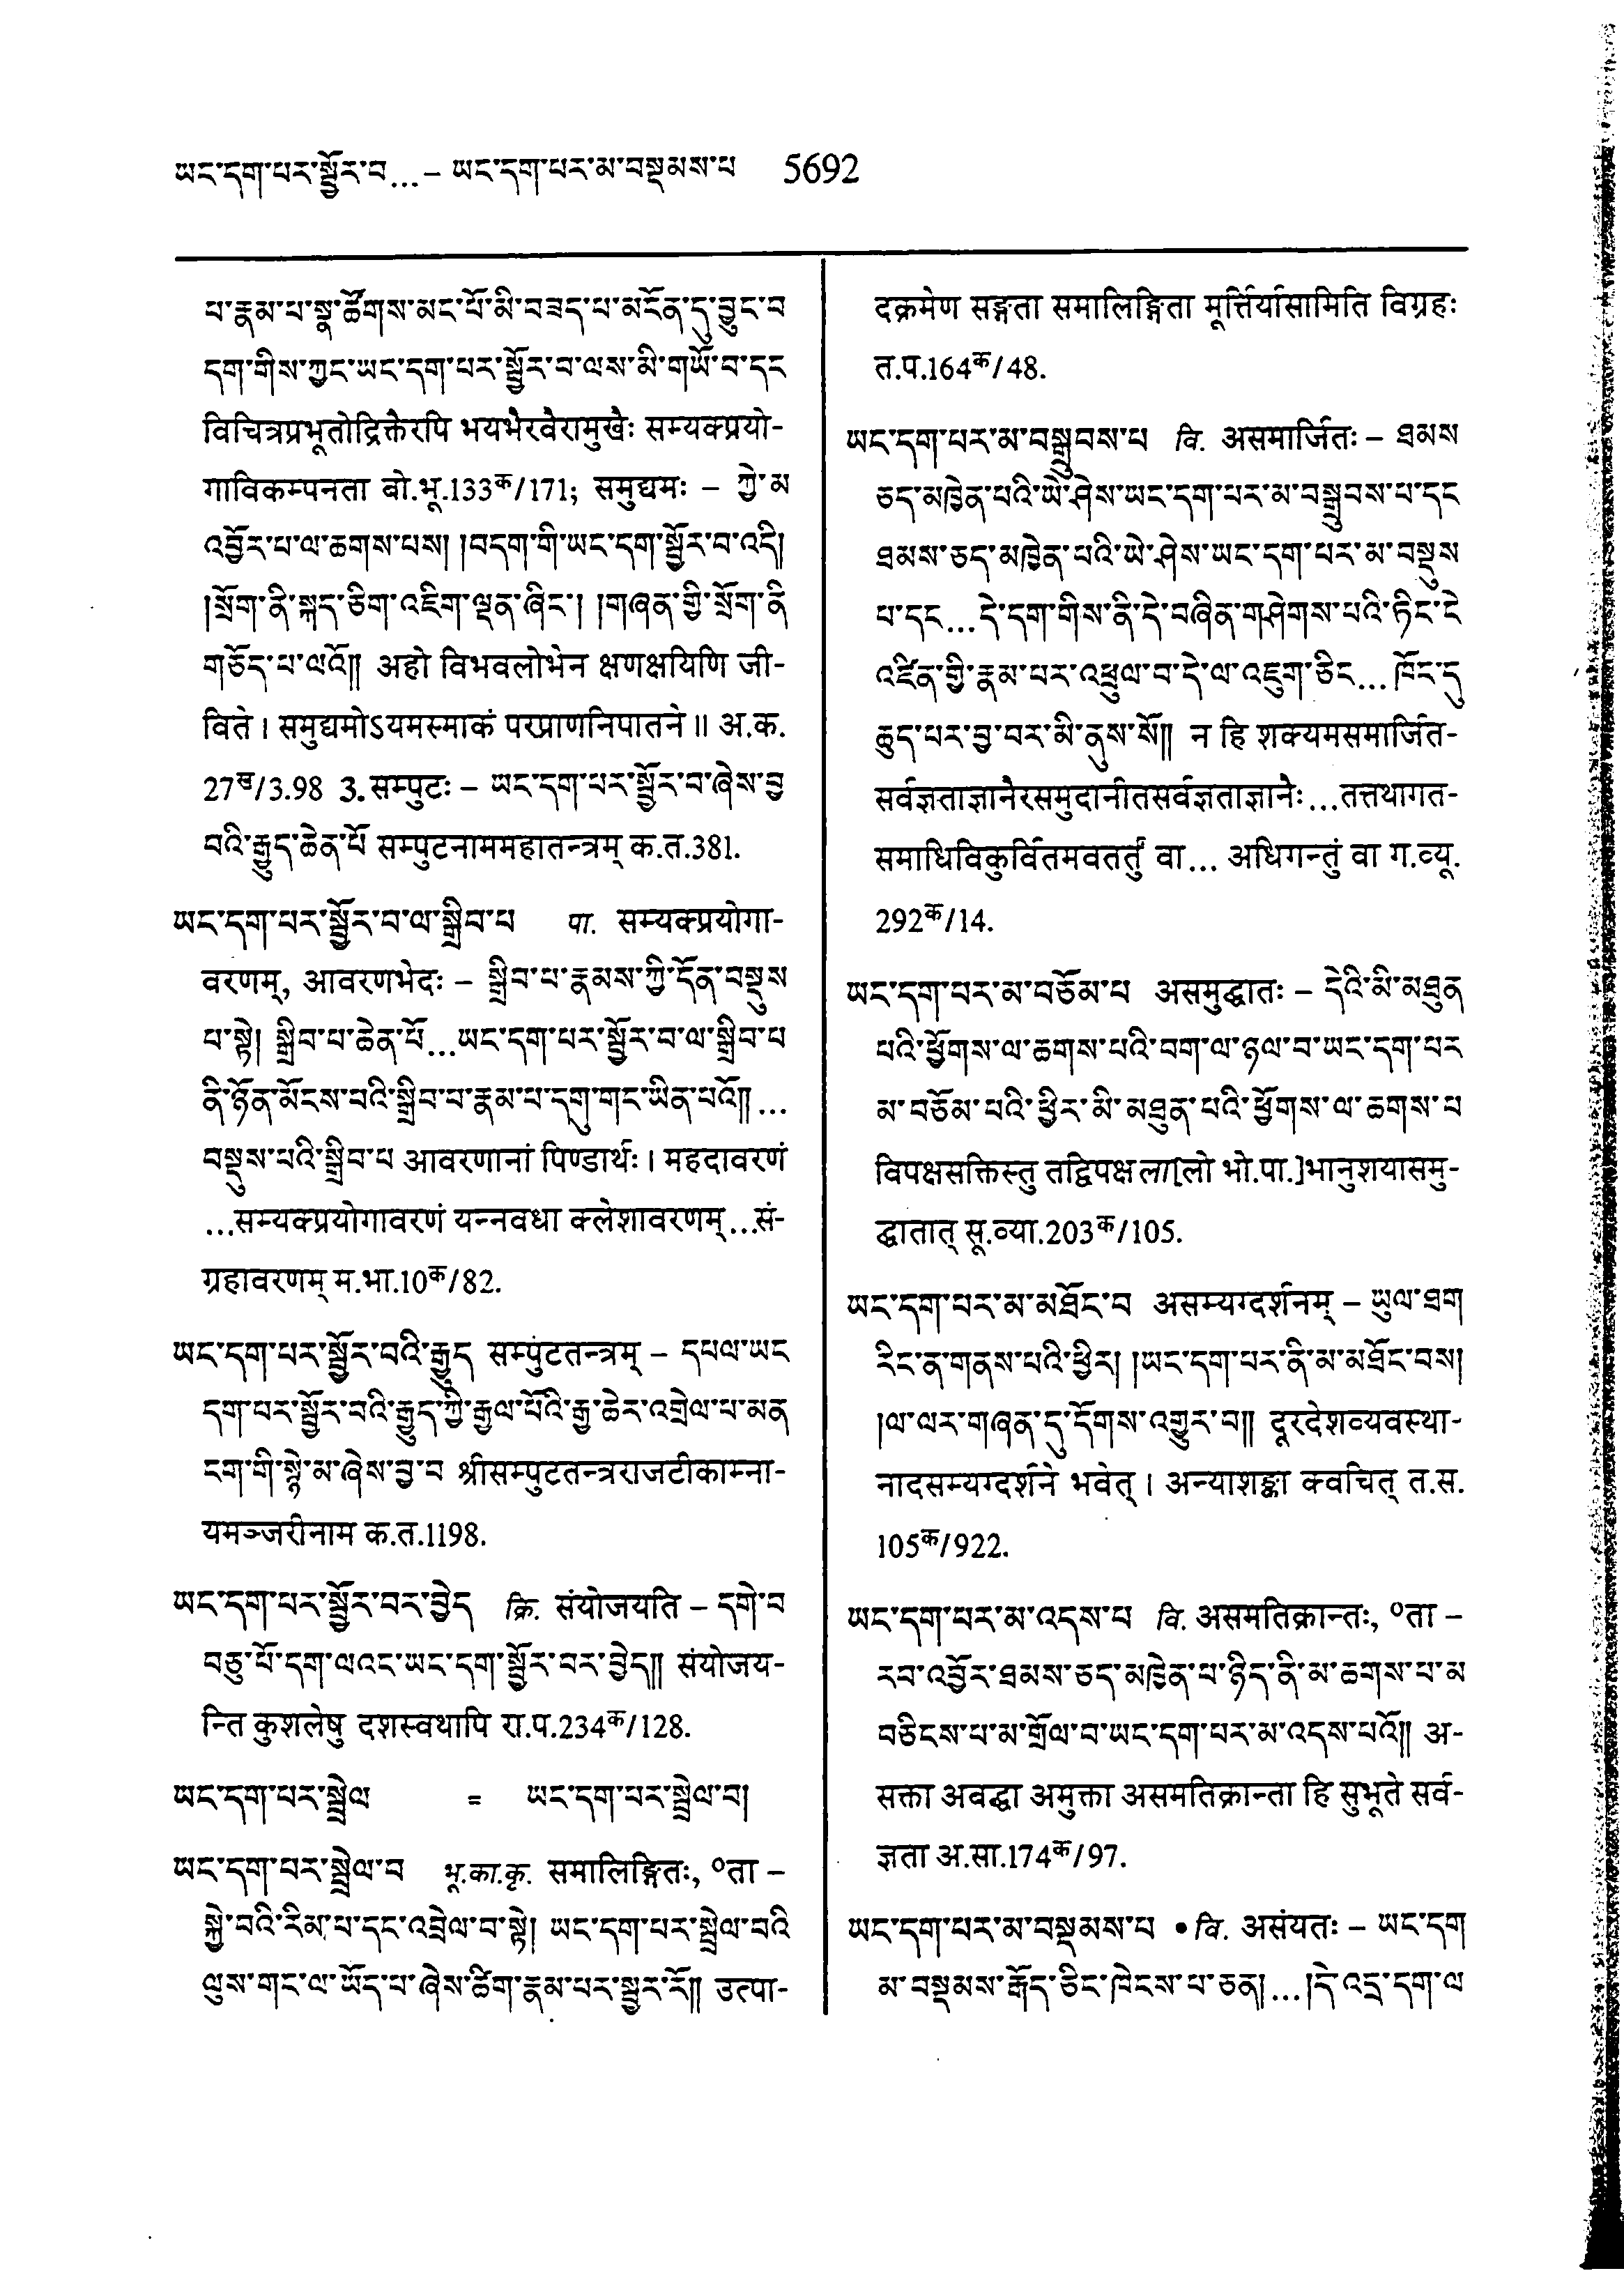 ཡང་དག་པར་སྦྱོར་བ...– ཡང་དག་པར་མ་བསྡམས་པ 5692
པ་རྣམ་པ་སྣ་ཚོགས་མང་པོ་མི་བཟད་པ་མངོན་དུ་བྱུང་བ
དག་གིས་ཀྱང་ཡང་དག་པར་སྦྱོར་བ་ལས་མི་གཡོ་བ་དང
विचित्रप्रभूतोद्रिक्तैरपि भयभैरवैरामुखैः सम्यक्प्रयो-
गाविकम्पनता बो.भू.133क/171; समुद्यमः – ཀྱེ་མ
འབྱོར་པ་ལ་ཆགས་པས། །བདག་གི་ཡང་དག་སྦྱོར་བ་འདི།
།སྲོག་ནི་སྐད་ཅིག་འཇིག་ལྡན་ཞིང་། །གཞན་གྱི་སྲོག་ནི
གཅོད་པ་ལའོ།། अहो विभवलोभेन क्षणक्षयिणि जी-
विते । समुद्यमोऽयमस्माकं परप्राणनिपातने ॥ अ.क.
27ख/3.98 3. सम्पुटः – ཡང་དག་པར་སྦྱོར་བ་ཞེས་བྱ
བའི་རྒྱུད་ཆེན་པོ सम्पुटनाममहातन्त्रम् क.त.381.
ཡང་དག་པར་སྦྱོར་བ་ལ་སྒྲིབ་པ पा. सम्यक्प्रयोगा-
वरणम्, आवरणभेदः – སྒྲིབ་པ་རྣམས་ཀྱི་དོན་བསྡུས
པ་སྟེ། སྒྲིབ་པ་ཆེན་པོ...ཡང་དག་པར་སྦྱོར་བ་ལ་སྒྲིབ་པ
ནི་ཉོན་མོངས་པའི་སྒྲིབ་པ་རྣམ་པ་དགུ་གང་ཡིན་པའོ།།...
བསྡུས་པའི་སྒྲིབ་པ आवरणानां पिण्डार्थः । महदावरणं
...सम्यक्प्रयोगावरणं यन्नवधा क्लेशावरणम्...सं-
ग्रहावरणम् म.भा.10क/82.
ཡང་དག་པར་སྦྱོར་བའི་རྒྱུད सम्पुटतन्त्रम् – དཔལ་ཡང
དག་པར་སྦྱོར་བའི་རྒྱུད་ཀྱི་རྒྱལ་པོའི་རྒྱ་ཆེར་འགྲེལ་པ་མན
ངག་གི་སྙེ་མ་ཞེས་བྱ་བ श्रीसम्पुटतन्त्रराजटीकाम्ना-
यमञ्जरीनाम क.त.1198.
ཡང་དག་པར་སྦྱོར་བར་བྱེད क्रि. संयोजयति – དགེ་བ
བཅུ་པོ་དག་ལའང་ཡང་དག་སྦྱོར་བར་བྱེད།། संयोजय-
न्ति कुशलेषु दशस्वथापि रा.प.234क/128.
ཡང་དག་པར་སྦྲེལ = ཡང་དག་པར་སྦྲེལ་བ།
ཡང་དག་པར་སྦྲེལ་བ भू.का.कृ. समालिङ्गितः, ºता –
སྐྱེ་བའི་རིམ་པ་དང་འབྲེལ་བ་སྟེ། ཡང་དག་པར་སྦྲེལ་བའི
ལུས་གང་ལ་ཡོད་པ་ཞེས་ཚིག་རྣམ་པར་སྦྱར་རོ།། उत्पा-
दक्रमेण सङ्गता समालिङ्गिता मूर्त्तिर्यासामिति विग्रहः
त.प.164क/48.
ཡང་དག་པར་མ་བསྒྲུབས་པ वि. असमार्जितः – ཐམས
ཅད་མཁྱེན་པའི་ཡེ་ཤེས་ཡང་དག་པར་མ་བསྒྲུབས་པ་དང
ཐམས་ཅད་མཁྱེན་པའི་ཡེ་ཤེས་ཡང་དག་པར་མ་བསྡུས
པ་དང...དེ་དག་གིས་ནི་དེ་བཞིན་གཤེགས་པའི་ཏིང་ངེ
འཛིན་གྱི་རྣམ་པར་འཕྲུལ་བ་དེ་ལ་འཇུག་ཅིང...ཁོང་དུ
ཆུད་པར་བྱ་བར་མི་ནུས་སོ།། न हि शक्यमसमार्जित-
सर्वज्ञताज्ञानैरसमुदानीतसर्वज्ञताज्ञानैः...तत्तथागत-
समाधिविकुर्वितमवतर्तुं वा... अधिगन्तुं वा ग.व्यू.
292क/14.
ཡང་དག་པར་མ་བཅོམ་པ असमुद्धातः – དེའི་མི་མཐུན
པའི་ཕྱོགས་ལ་ཆགས་པའི་བག་ལ་ཉལ་བ་ཡང་དག་པར
མ་བཅོམ་པའི་ཕྱིར་མི་མཐུན་པའི་ཕྱོགས་ལ་ཆགས་པ
विपक्षसक्तिस्तु तद्विपक्षला[लो भो.पा.]भानुशयासमु-
द्धातात् सू.व्या.203क/105.
ཡང་དག་པར་མ་མཐོང་བ असम्यग्दर्शनम् – ཡུལ་ཐག
རིང་ན་གནས་པའི་ཕྱིར། །ཡང་དག་པར་ནི་མ་མཐོང་བས།
།ལ་ལར་གཞན་དུ་དོགས་འགྱུར་བ།། दूरदेशव्यवस्था-
नादसम्यग्दर्शने भवेत् । अन्याशङ्का क्वचित् त.स.
105क/922.
ཡང་དག་པར་མ་འདས་པ वि. असमतिक्रान्तः, ºता –
རབ་འབྱོར་ཐམས་ཅད་མཁྱེན་པ་ཉིད་ནི་མ་ཆགས་པ་མ
བཅིངས་པ་མ་གྲོལ་བ་ཡང་དག་པར་མ་འདས་པའོ།། अ-
सक्ता अवद्धा अमुक्ता असमतिक्रान्ता हि सुभूते सर्व-
ज्ञता अ.सा.174क/97.
ཡང་དག་པར་མ་བསྡམས་པ • वि. असंयतः – ཡང་དག
མ་བསྡམས་རྒོད་ཅིང་ཁེངས་པ་ཅན།...།དེ་འདྲ་དག་ལ